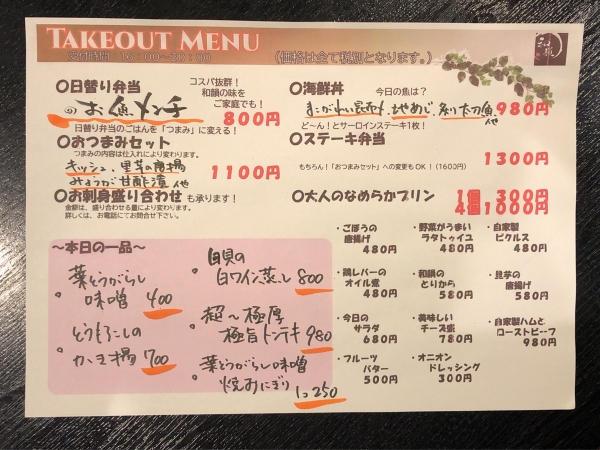 TAKEOUT MENU
(価格は全て税別となります。)
○日替り弁当
コスパ抜群!
和韻の味を
ご家庭でも!
のお魚メンチ
800円
日替り弁当のごはんを「つまみ」に変える!
○おつまみセット
つまみの内容は仕入れにより変わります。
キッシュ、里芋の唐揚
みょうが甘酢漬 他
1100円
○お刺身盛り合わせ も承ります!
金額は、盛り合わせる量により変わります。
詳しくは、お電話にてお問合せ下さい。
○海鮮丼
今日の魚は?
まこがれい昆布〆、地あじ、炙り太刀魚 他
980円
ど~ん!とサーロインステーキ1枚!
○ステーキ弁当
1300円
もちろん!「おつまみセット」への変更もOK!(1600円)
○大人のなめらかプリン
1個 300円
4個1000円
~本日の一品~
葉とうがらし
味噌 400
とうもろこしの
かき揚 700
白貝の
白ワイン蒸し 800
超~極厚
極旨トンテキ 980
葉とうがらし味噌
焼おにぎり 1コ250
・ごぼうの
唐揚げ
480円
・野菜がうまい
ラタトゥイユ
480円
・自家製
ピクルス
480円
・鶏レバーの
オイル煮
480円
・和韻の
とりから
580円
・里芋の
唐揚げ
580円
・今日の
サラダ
680円
・美味しい
チーズ煮
780円
・自家製ハムと
ローストビーフ
980円
・フルーツ
バター
500円
・オニオン
ドレッシング
300円